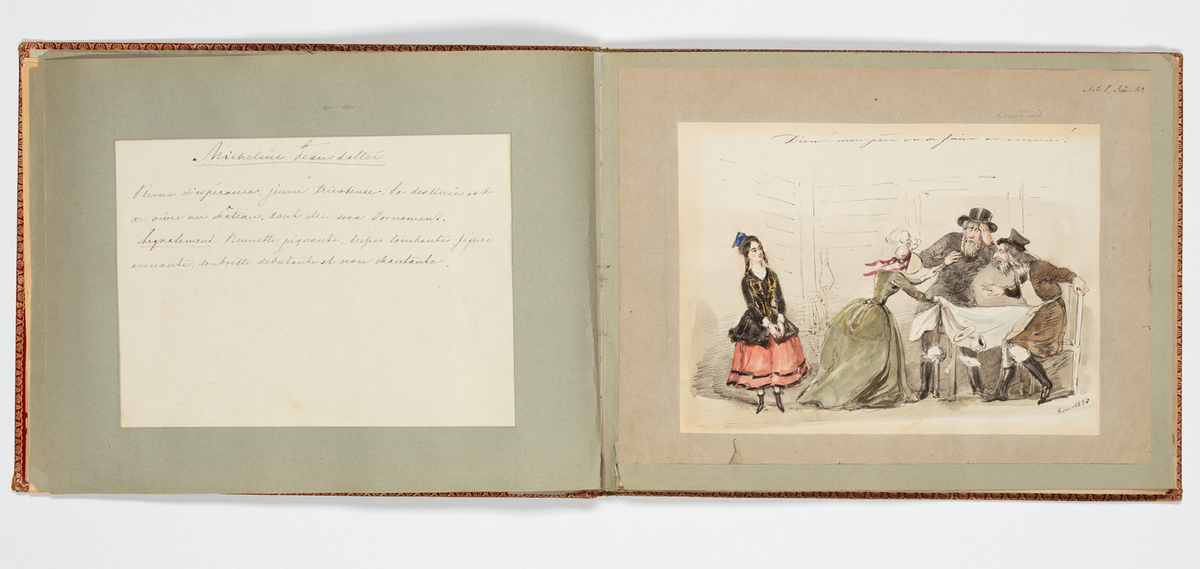 Micheline
Pleine d'espérance, jeune tricoteuse. Sa destinée est
de vivre au château, dont elle sera l'ornement.
Signalement. Brunette piquante, tresses tombantes, figure
avenante, soubrette débutante et non chantante.
Acte 1, Scène 10.
Dieu! mon père va se faire assommer!